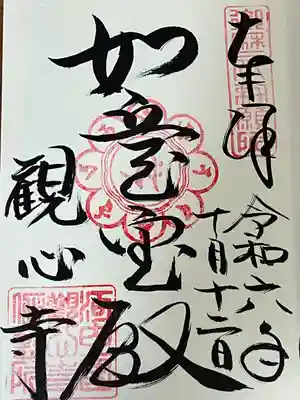 奉拝
令和六年
十月十二日
如意宝殿
観心寺